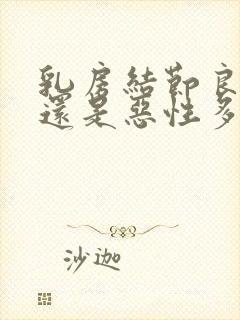 乳房結節良
還是惡性多
沙迦